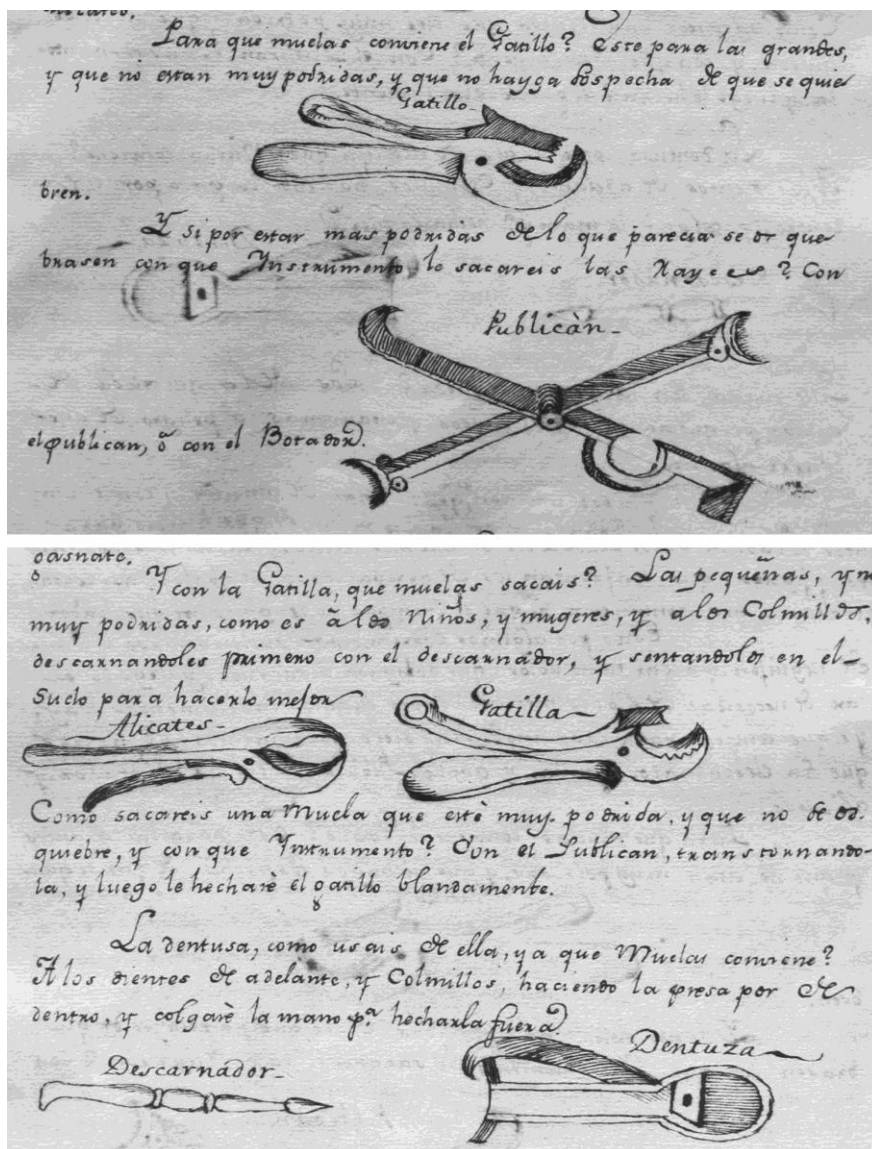 Para que muelas conviene el Gatillo? Este para las grandes,
y que no estan muy podridas, y que no hayga sospecha de que se quie
Gatillo
bren.
Y si por estar mas podridas de lo que parecia se os que
brasen con que Ynstrumento le sacareis las Rayces? Con
Publicàn
el publican, ô con el Botador.
gasnate.
Y con la Gatilla, que muelas sacais? Las pequeñas, y no
muy podridas, como es â los Niños, y mugeres, y a los Colmillos,
descarnandoles primero con el descarnador, y sentandoles en el
Suelo para hacerlo mejor
Alicates
Gatilla
Como sacareis una Muela que estè muy podrida, y que no se os
quiebre, y con que Ynstrumento? Con el Publican, transtornando-
la, y luego le hecharè el gatillo blandamente.
La dentusa, como usais de ella, y a que Muelas conviene?
A los dientes de adelante, y Colmillos, haciendo la presa por de
dentro, y colgarè la mano pª hecharla fuera.
Descarnador
Dentuza